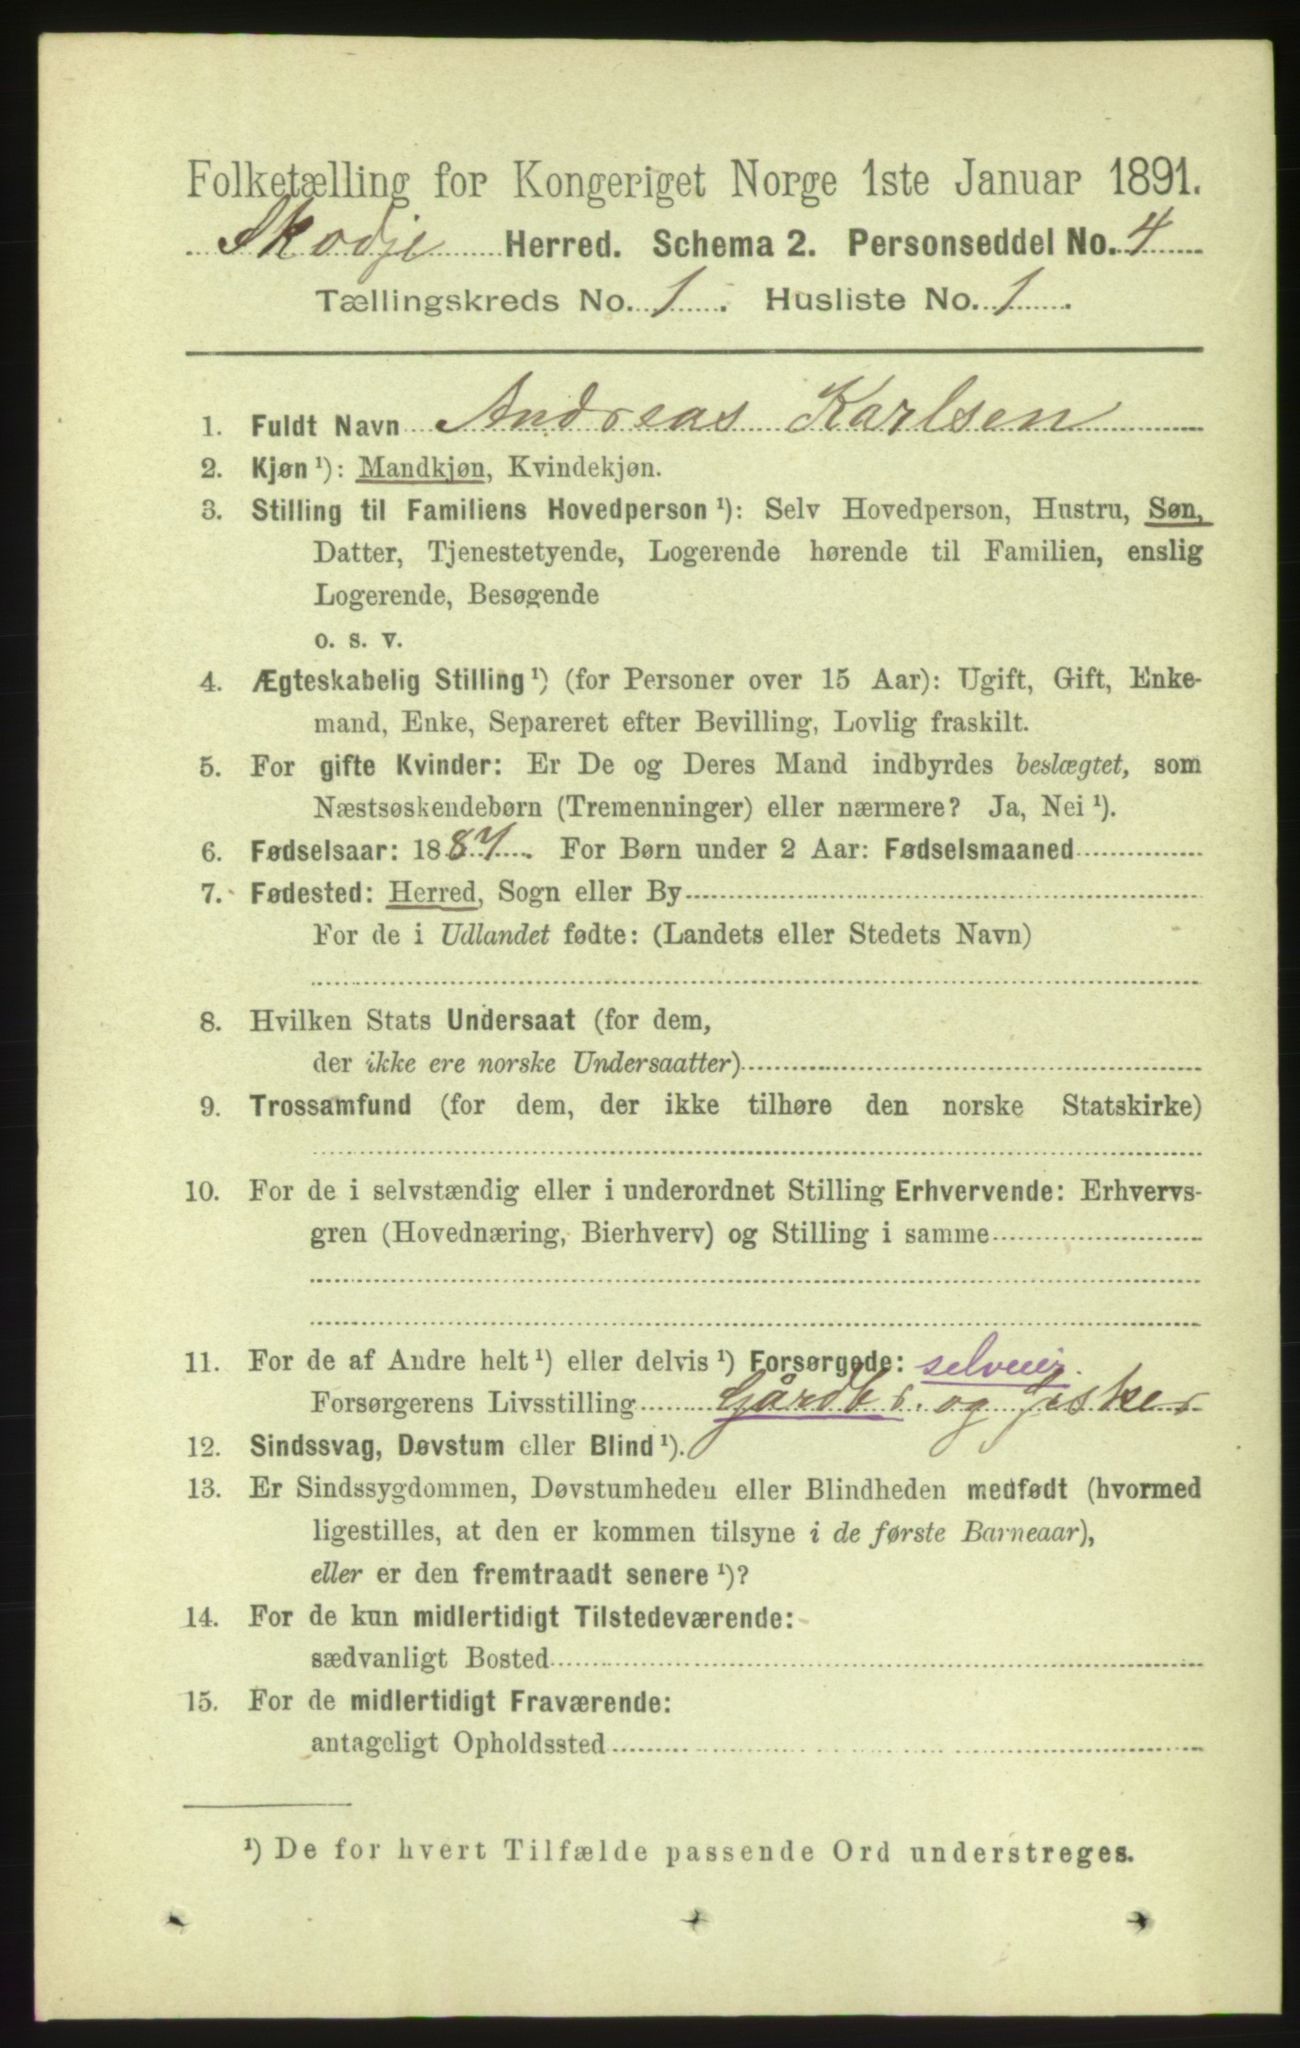 Folketælling for Kongeriget Norge 1ste Januar 1891.
Skodje Herred. Schema 2. Personseddel No. 4
Tællingskreds No. 1. Husliste No. 1.
1. Fuldt Navn Andreas Karlsen
2. Kjøn ¹): Mandkjøn, Kvindekjøn.
3. Stilling til Familiens Hovedperson ¹): Selv Hovedperson, Hustru, Søn,
Datter, Tjenestetyende, Logerende hørende til Familien, enslig
Logerende, Besøgende
o. s. v.
4. Ægteskabelig Stilling ¹) (for Personer over 15 Aar): Ugift, Gift, Enke-
mand, Enke, Separeret efter Bevilling, Lovlig fraskilt.
5. For gifte Kvinder: Er De og Deres Mand indbyrdes beslægtet, som
Næstsøskendebørn (Tremenninger) eller nærmere? Ja, Nei ¹).
6. Fødselsaar: 1887. For Børn under 2 Aar: Fødselsmaaned
7. Fødested: Herred, Sogn eller By
For de i Udlandet fødte: (Landets eller Stedets Navn)
8. Hvilken Stats Undersaat (for dem,
der ikke ere norske Undersaatter)
9. Trossamfund (for dem, der ikke tilhøre den norske Statskirke)
10. For de i selvstændig eller i underordnet Stilling Erhvervende: Erhvervs-
gren (Hovednæring, Bierhverv) og Stilling i samme
11. For de af Andre helt ¹) eller delvis ¹) Forsørgede: selveier.
Forsørgerens Livsstilling Gårdbr. og fisker
12. Sindssvag, Døvstum eller Blind ¹).
13. Er Sindssygdommen, Døvstumheden eller Blindheden medfødt (hvormed
ligestilles, at den er kommen tilsyne i de første Barneaar),
eller er den fremtraadt senere ¹)?
14. For de kun midlertidigt Tilstedeværende:
sædvanligt Bosted
15. For de midlertidigt Fraværende:
antageligt Opholdssted
¹) De for hvert Tilfælde passende Ord understreges.